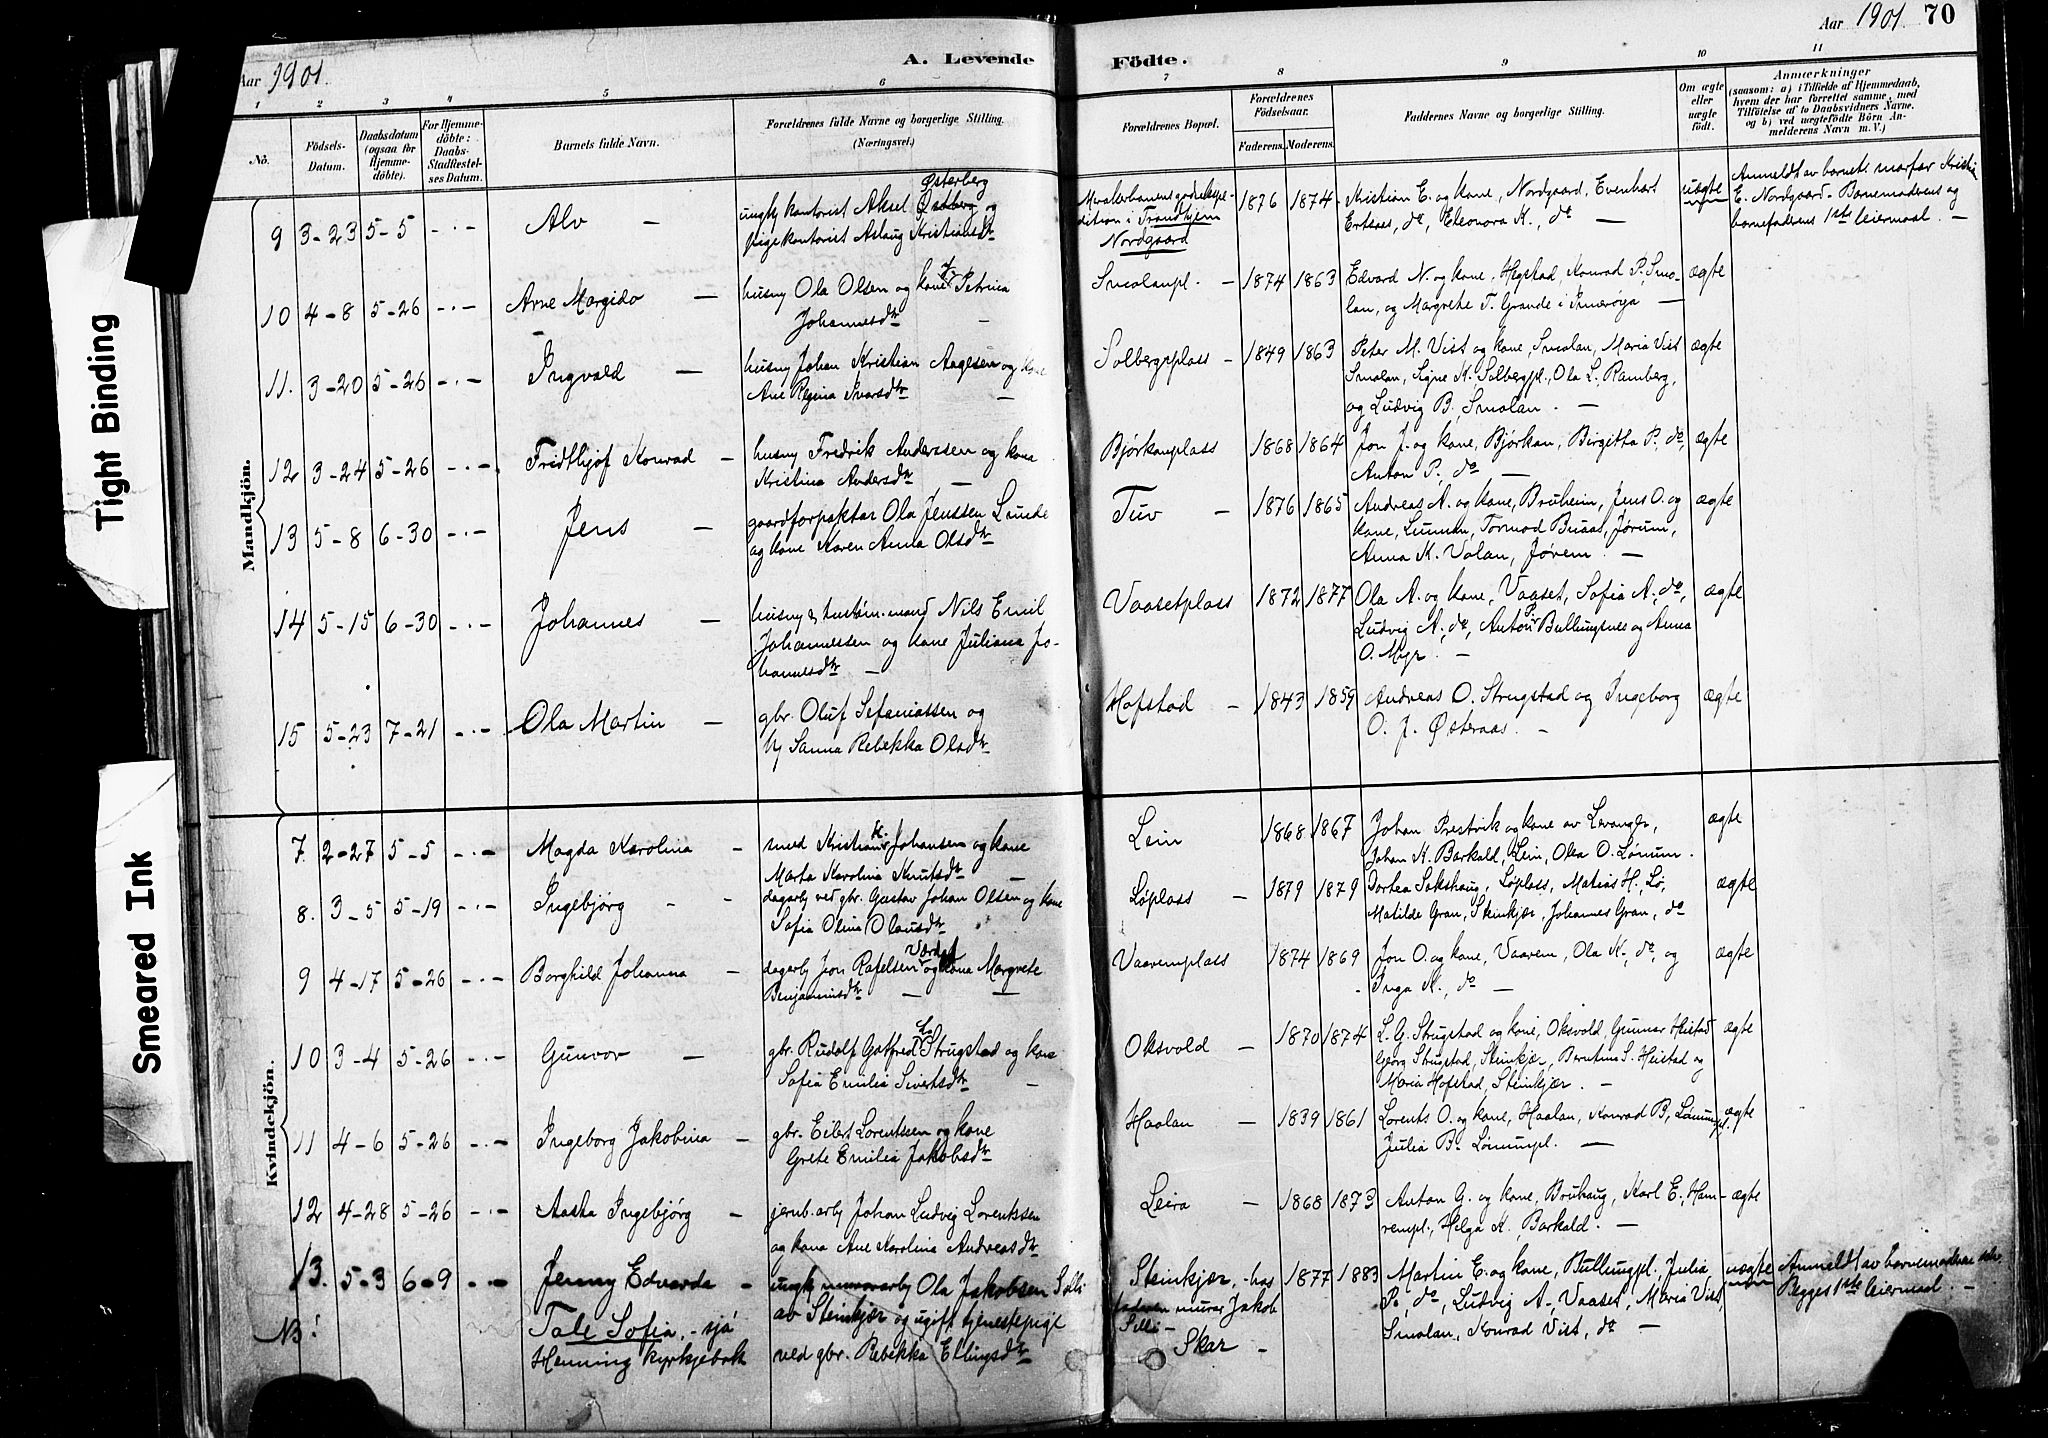 Aar 1901.
A. Levende Födte.
Aar 1901. 70
Tight Binding
Smeared Ink
1 2 3 4 5 6 7 8 9 10 11
No.
Födsels-Datum.
Daabsdatum (ogsaa for Hjemme-döbte).
For Hjemme-döbte: Daabs-Stadfæstel-ses Datum.
Barnets fulde Navn.
Forældrenes fulde Navne og borgerlige Stilling.
(Næringsvei.)
Forældrenes Bopæl.
Forældrenes Födselsaar.
Faderens. Moderens.
Faddernes Navne og borgerlige Stilling.
Om ægte eller uægte födt.
Anmærkninger
(saasom: a) i Tilfælde af Hjemmedaab,
hvem der har forrettet samme, med
Tilföielse af to Daabsvidners Navne.
og b) ved uægtefödte Börn An-
melderens Navn m. V.)
Mandkjön.
9 3-23 5-5 -.- Alv —
ungk kantorist Aksel Østberg og
Østerberg
pigekantorist Aslaug Kristiansdtr
dition i Trondhjem
Nordgaard
1876 1874
Kristian E. og kone, Nordgaard, Evenhart
Ertsaas, do, Eleonora K., do —
uægte
Anmeldt av barnets morfar Kristi
E. Nordgaard. Barnemoderens og
barnefaderens 1ste leiermaal. —
10 4-8 5-26 -.- Arne Margido —
husmy Ola Olsen og kone Petrina
Johannesdtr —
Smolanpl. — 1874 1863
Edvard N. og kone, Hegstad, Konrad P. Smo-
lan, og Margrete T. Grande i Inderøya —
ægte
11. 3-20 5-26 -.- Ingvald —
husmy Johan Kristian Aagesen og kone
Ane Regina Ivarsdtr —
Solbergplass — 1849 1863
Peter M. Vist og kone, Smolan, Maria Vist
Smolan, Signe K. Solbergpl., Ola L. Ramberg,
og Ludvig B. Smolan. —
ægte
12 3-24 5-26 -.- Fridthjof Konrad —
husmy Fredrik Anderssen og kona
Kristina Andersdtr —
Bjørkanplass 1868 1864
Jon J. og kone, Bjørkan, Birgitta P. do,
Anton P., do —
ægte
13 5-8 6-30 -.- Jens —
gaardforpaktar Ola Jenssen Lunde
og kone Karen Anna Olsdtr
Tuv — 1876 1865
Andreas A. og kone, Bruheim, Jens O. og
kone, Lunnan, Tormod Buaas, Jørum,
Anna K. Volan, Jørem. —
ægte
14 5-15 6-30 -.- Johannes —
Nils Emil
Johannessen og kone Juliana Jo-
hannesdtr —
Vaasetplass 1872 1877
Ola A. og kone, Vaaset, Sofia A., do,
Ludvig A., do, Anton P. Bullingsnes og Anna
O. Myr. —
ægte
15 5-23 7-21 -.- Ola Martin —
gbr. Oluf Sefaniassen og
hj Sanna Rebekka Olsdtr
Hofstad — 1843 1859
Andreas O. Strugstad og Ingeborg
O. J. Østeraas. —
ægte
Kvindekjön.
7. 2-27 5-5 -.- Magda Karolina —
smed Kristian K. Johansen og kone
Marta Karolina Knutsdtr —
Lein 1868 1867
Johan Prestvik og kone av Levanger,
Johan K. Barkald, Lein, Ola O. Lønum.
ægte
8. 3-5 5-19 -.- Ingebjørg — —
dagarb ved gbr. Gustav Johan Olsen og kone
Sofia Olina Olausdtr
Løplass — 1879 1879
Dortea Sakshaug, Løplass, Matias H., Lø,
Matilde Gran, Steinkjær, Johannes Gran, do
ægte
9 4-17 5-26 -.- Borghild Johanna —
dagarb Jon Rafelsen og kona Margrete
Benjaminsdtr — —
Vaaremplass 1874 1869
Jon O. og kone, Vaarem, Ola K., do, og
Inga K., do —
ægte
10 3-4 5-26 -.- Gunvor —
gbr. Rudolf Gotfred Strugstad og kone
Sofia Emilia Sivertsdtr —
Oksvold — 1870 1874
L. G. Strugstad og kone, Oksvold, Gunnar Heistad
Georg Strugstad, Steinkjær, Berntine S. Heistad og
Maria Hofstad, Steinkjær. —
ægte
11 4-6 5-26 -.- Ingeborg Jakobina —
gbr. Eilert Lorentssen og kone
Grete Emilia Jakobsdtr
Haalan — 1839 1861
Lorents O. og kone, Haalan, Konrad B., Lønumpl.
Julia B. Lønumpl. —
ægte
12 4-28 5-26 -.- Aasta Ingebjørg —
jernb. arb Johan Ludvig Lorentssen
og kona Ane Karolina Andreasdtr
Leira — 1868 1873
Anton G. og kone, Bruhaug, Karl E., Ham-
rempl., Helga K., Barkald. —
ægte
13. 5-3 6-9 -.- Jenny Edvarda —
NB! Tale Sofia, - sjå
Henning kyrkjebok
ungk murararb Ola Jakobsen Selli
av Steinkjær og ugift tjenestepige
ved gbr. Rebekka Ellingsdtr
Steinkjær, - hos
faderen murar Jakob
Selli —
Skar —
1877 1883
Martin E. og kone, Bullingpl., Julia
P., do, Ludvig A., Vaaset, Maria Vist,
Smolan, Konrad Vist, do —
uægte
Anmeldt av barnemoderen selv.
Begges 1ste leiermaal. —